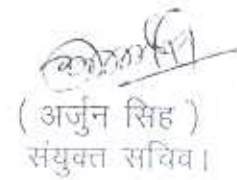 ( अर्जुन सिंह )
संयुक्त सचिव।